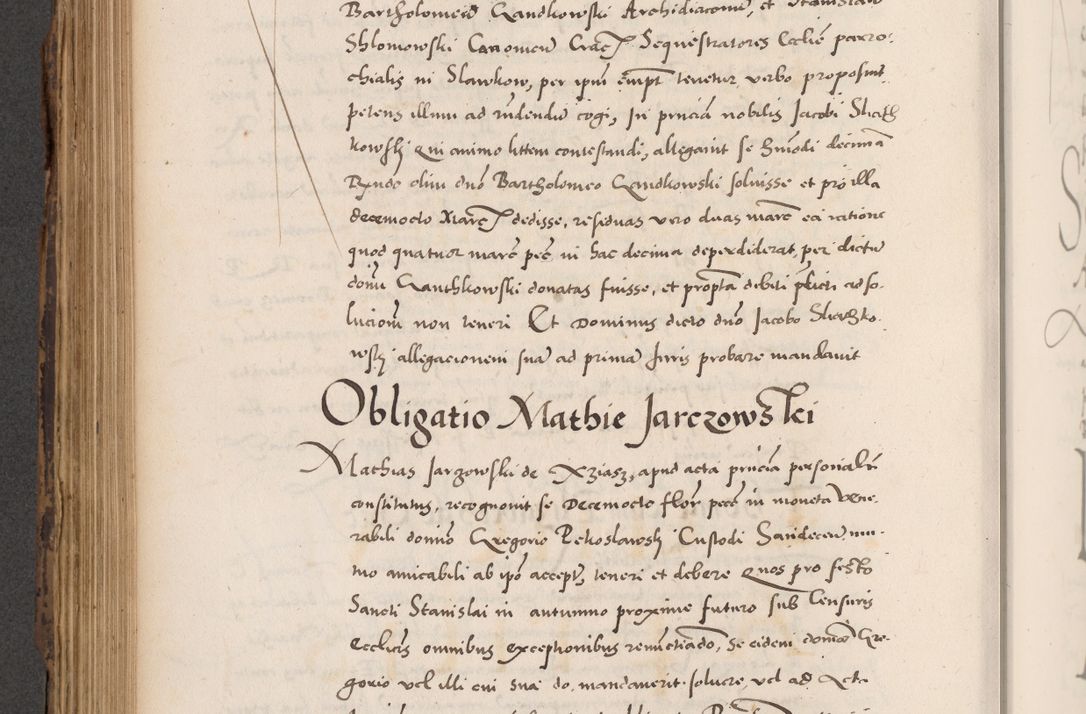 Bartholomeū Gandkowski Archidiaconū, et Stanislaū
Shlomowski Canonicū Crac̄ Sequestratores Ecclīe parro-
chialis in Slawkow, per ipm̄ tenetur verbo proposuit
petens illum ad rn̄dendū cogi, In pn̄cia nobilis Jacobi Sliath
kowsky qui animo littem contestandi, allegauit se hm̄odi decimā
Rn̄do olim dn̄o Bartholomeo Gandkowski soluisse et pro illa
decemocto Marc̄ dedisse, residuas vero duas marc̄ ea ratione
quod quatuor marc̄ pec̄ in hac decima deperdiderat, per dictū
dom̄ Ganthkowski donatas fuisse, et propt̄a debiti pīcti adso-
lucionē non teneri Et Dominus dicto dn̄o Jacobo Sliathko-
wsky allegacionem suā ad primā Juris probare mandauit
Obligatio Mathie Jarczowski
Mathias Jarzowski de Xziasz, apud acta pn̄cia personalr̄
constitutus, recognouit se Decemocto flor̄ pec̄ in moneta Vene-
rabili domīo Gregorio Petroslawsky Custodi Sandeceū mu-
tuo amicabili ab ip̄o accept, teneri et debere Quos pro festo
Sancti Stanislai in autumno proxime futuro sub Censuris
Ecclīcis omnibus exceptionibus renūctiādo, se eidem domīo Gre-
gorio vel illi cui sua do. mandauerit soluere, vel ad Acta